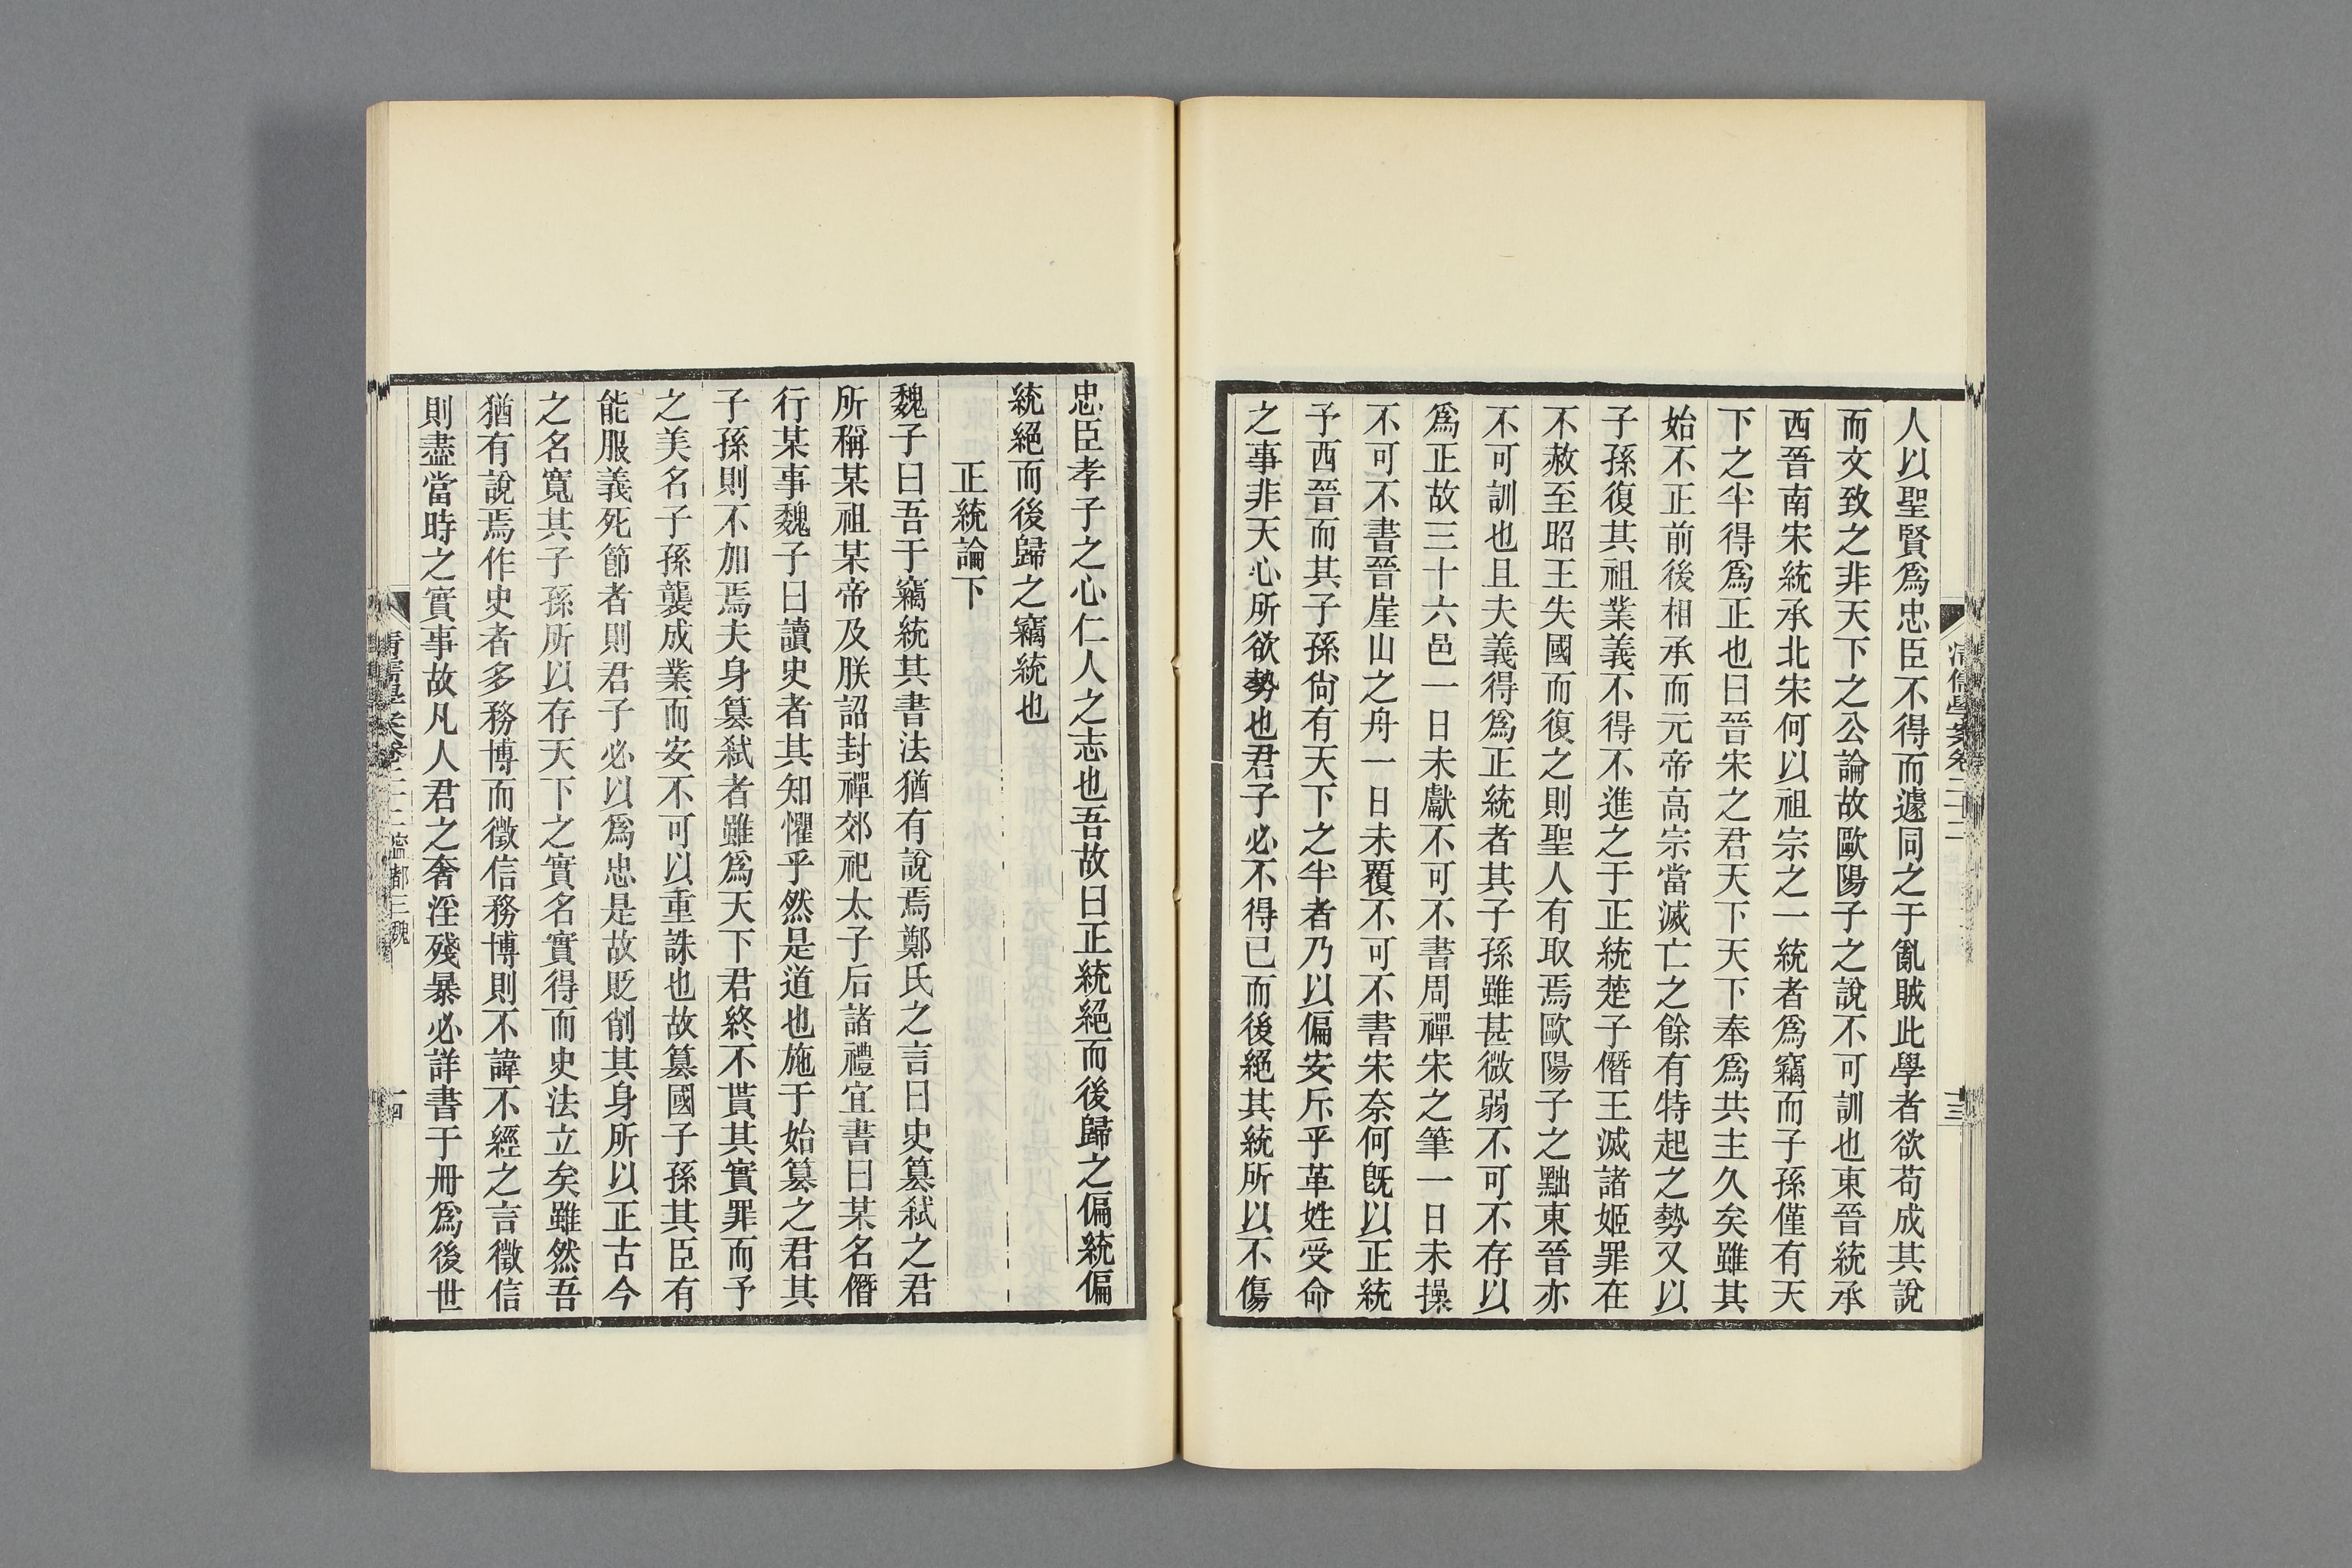 清儒學案卷二十二
十三
人以聖賢爲忠臣不得而遽同之于亂賊此學者欲苟成其說
而文致之非天下之公論故歐陽子之說不可訓也東晉統承
西晉南宋統承北宋何以祖宗之一統者爲竊而子孫僅有天
下之半得爲正也曰晉宋之君天下天下奉爲共主久矣雖其
始不正前後相承而元帝高宗當滅亡之餘有特起之勢又以
子孫復其祖業義不得不進之于正統楚子僭王滅諸姬罪在
不赦至昭王失國而復之則聖人有取焉歐陽子之黜東晉亦
不可訓也且夫義得爲正統者其子孫雖甚微弱不可不存以
爲正故三十六邑一日未獻不可不書周禪宋之筆一日未操
不可不書晉崖山之舟一日未覆不可不書宋奈何旣以正統
予西晉而其子孫尙有天下之半者乃以偏安斥乎革姓受命
之事非天心所欲勢也君子必不得已而後絕其統所以不傷
忠臣孝子之心仁人之志也吾故曰正統絕而後歸之偏統偏
統絕而後歸之竊統也
正統論下
魏子曰吾于竊統其書法猶有說焉鄭氏之言曰史篡弒之君
所稱某祖某帝及朕詔封禪郊祀太子后諸禮宜書曰某名僭
行某事魏子曰讀史者其知懼乎然是道也施于始篡之君其
子孫則不加焉夫身篡弒者雖爲天下君終不貰其實罪而予
之美名子孫襲成業而安不可以重誅也故篡國子孫其臣有
能服義死節者則君子必以爲忠是故貶削其身所以正古今
之名寬其子孫所以存天下之實名實得而史法立矣雖然吾
猶有說焉作史者多務博而徵信務博則不諱不經之言徵信
則盡當時之實事故凡人君之奢淫殘暴必詳書于冊爲後世
清儒學案卷二十二 寧都三魏
十四